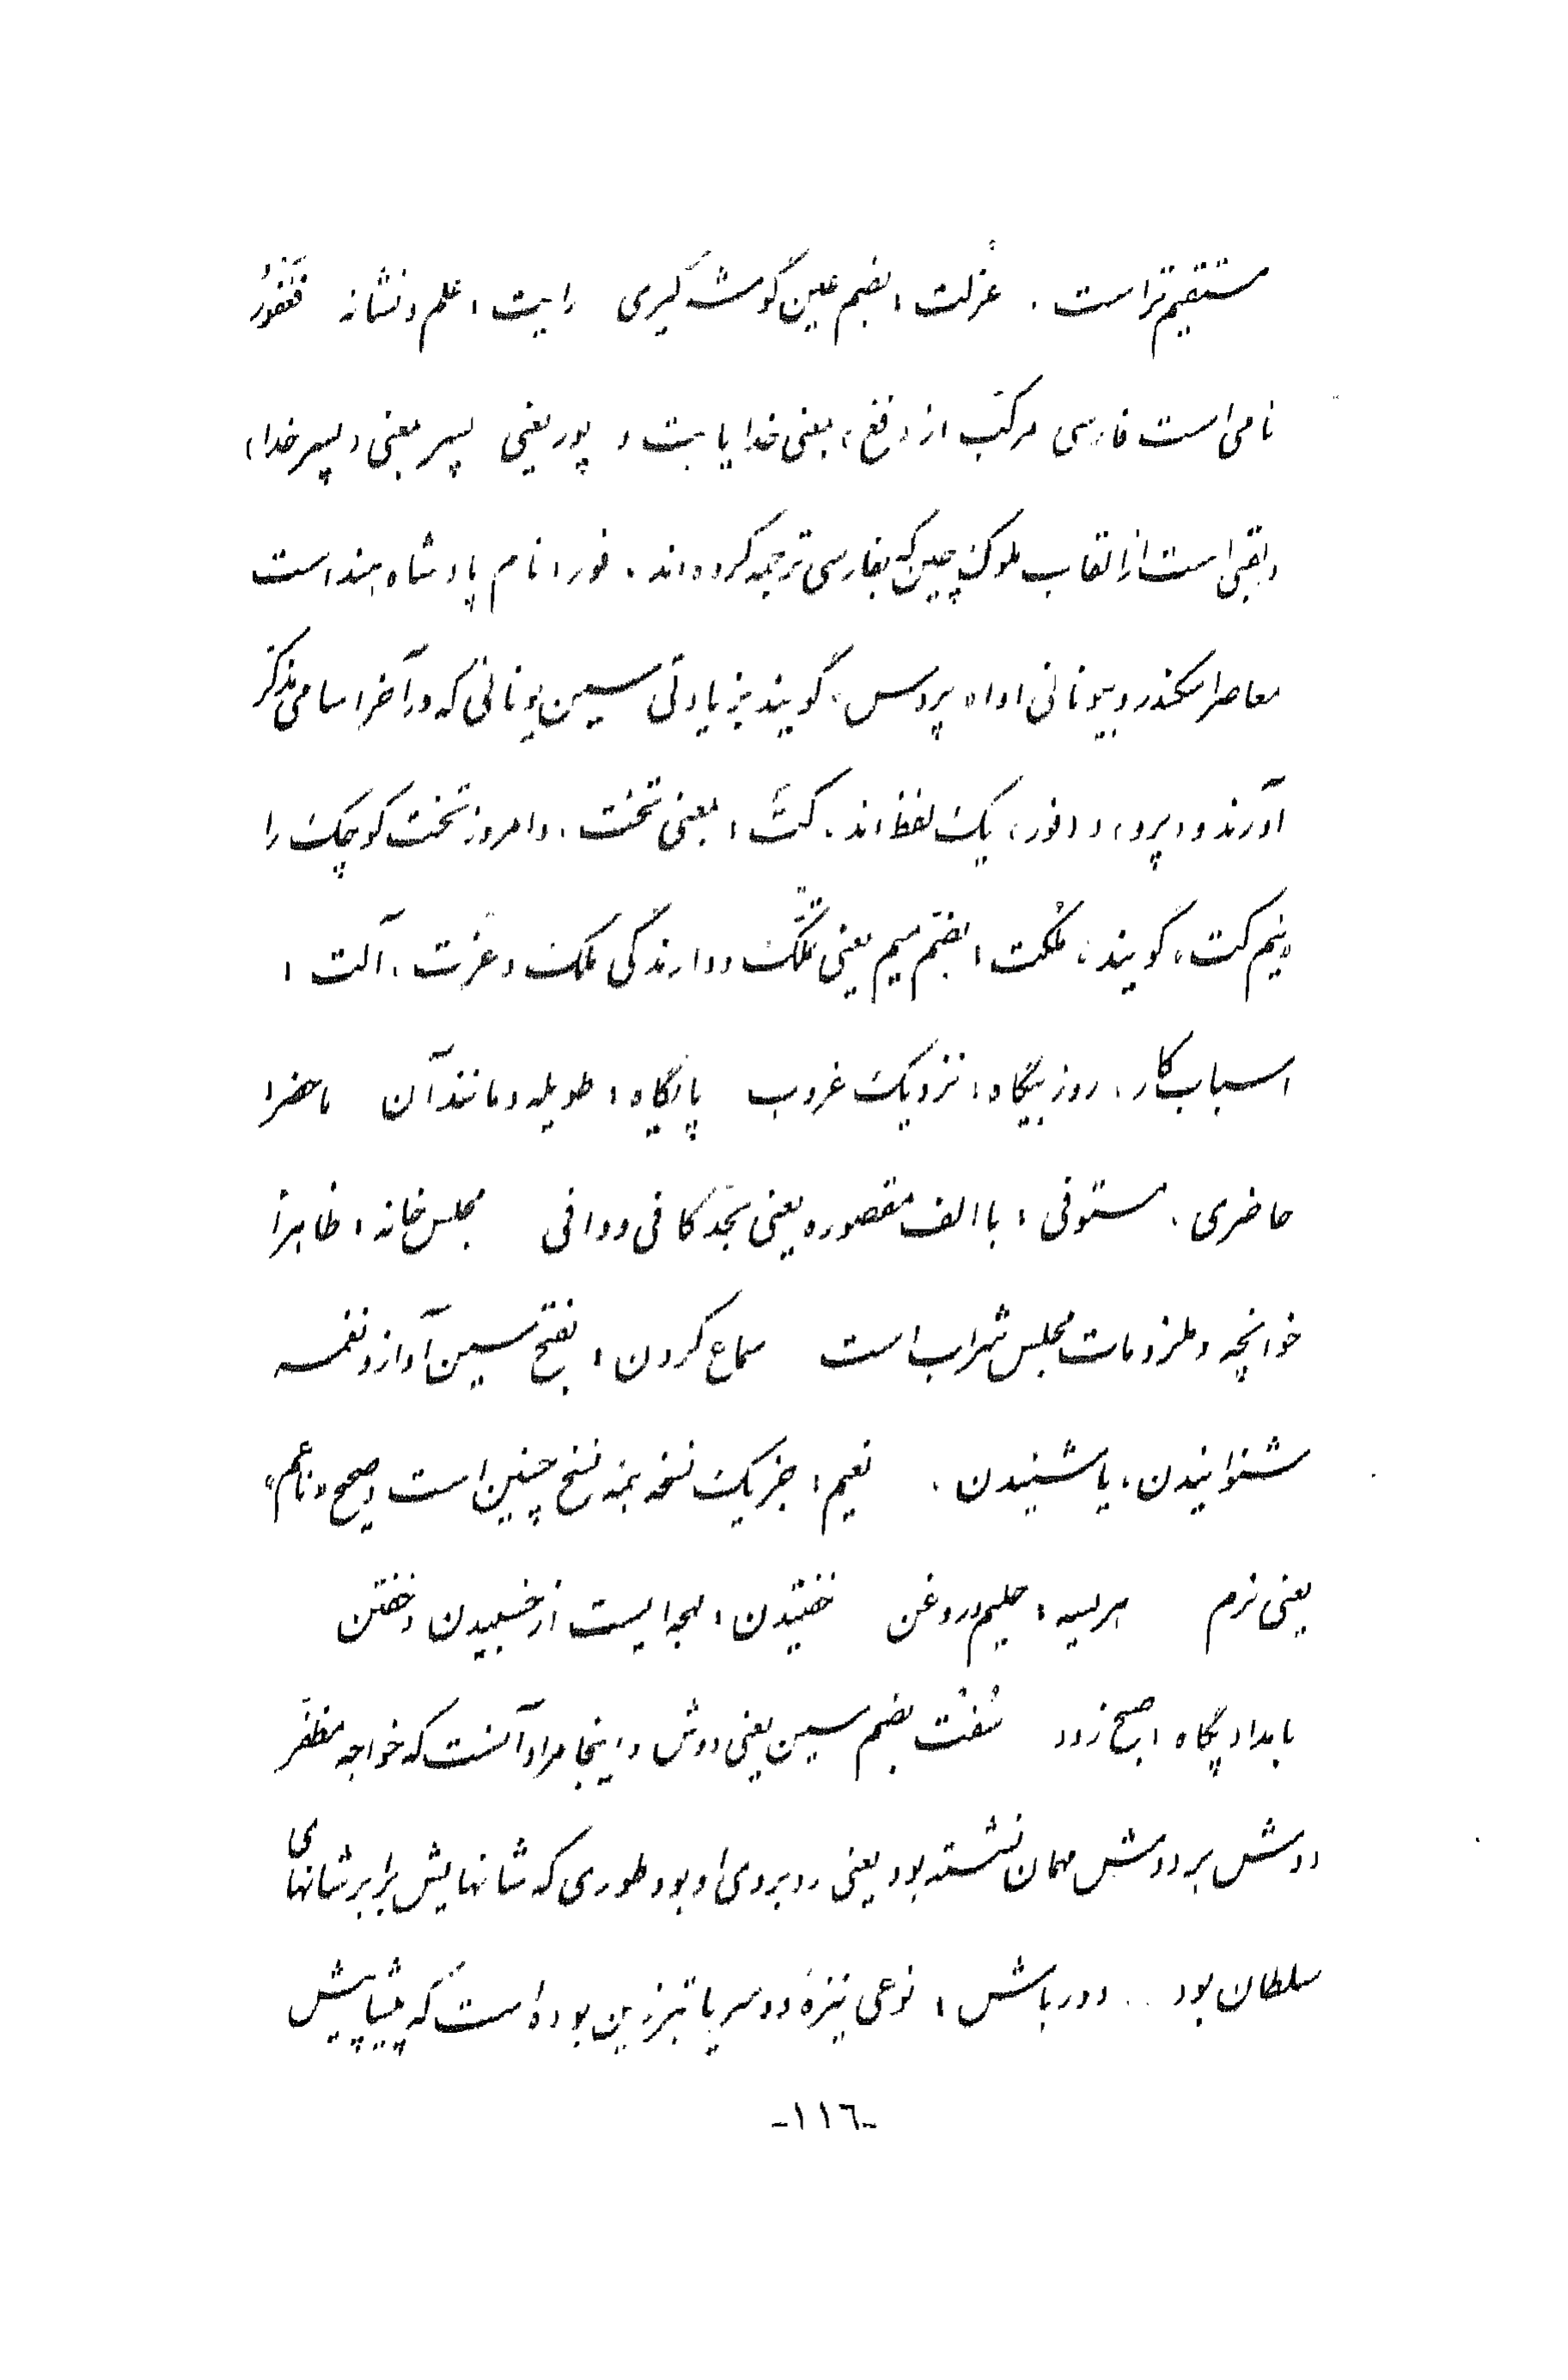 مستقیم‌تر است . عُزلت : بضم عین گوشه‌گیری رایت : علم و نشانه فَغفورُ
نامی است فارسی مرکب از (فغ) بمعنی خدا یا بت و پور یعنی پسر بمعنی (پسر خدا)
و لقبی است از القاب ملوک چین که بفارسی ترجمه کرده‌اند . فور : نام پادشاه هند است
معاصر اسکندر و بیونانی او را «پروس» گویند بزیادتی سین یونانی که در آخر اسامی مذکر
آورند و (پرو) و (فور) یک لفظ‌اند . کَتْ : بمعنی تخت . و امروز تخت کوچک را
«نیم کت» گویند ، مُکنت : بضّم میم یعنی تملّک و دارندگی ملک و عزّت . آلت :
اسباب کار . روز بیگاه : نزدیک غروب پایگاه : طویله و مانند آن ماحضر :
حاضری . مستوفی : با الف مقصوره یعنی بحّد کافی و وافی مجلس خانه : ظاهراً
خوانچه و ملزومات مجلس شراب است سماع کردن : بفتح سین آواز و نغمه
شنوانیدن ، یا شنیدن . نعیم : جز یک نسخه بقیه نسخ چنین است و صحیح «ناعم»
یعنی نرم هریسه : حلیم و روغن خفتیدن : لهجه ایست از خسبیدن و خفتن
بامداد پگاه : صبح زود سُفْت بضم سین یعنی دوش و اینجا مراد آنست که خواجه مظفّر
دوش بر دوش مهمان نشسته بود یعنی روبروی او بود طوری که شانهایش برابر شانهای
سلطان بود .. دور باش : نوعی نیزهٔ دوسر یا تبرزین بوده است که پیشاپیش
-١١٦-